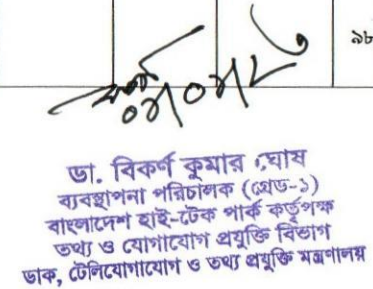 ৯৮
ডা. বিকর্ণ কুমার ঘোষ
ব্যবস্থাপনা পরিচালক (গ্রেড-১)
বাংলাদেশ হাই-টেক পার্ক কর্তৃপক্ষ
তথ্য ও যোগাযোগ প্রযুক্তি বিভাগ
ডাক, টেলিযোগাযোগ ও তথ্য প্রযুক্তি মন্ত্রণালয়